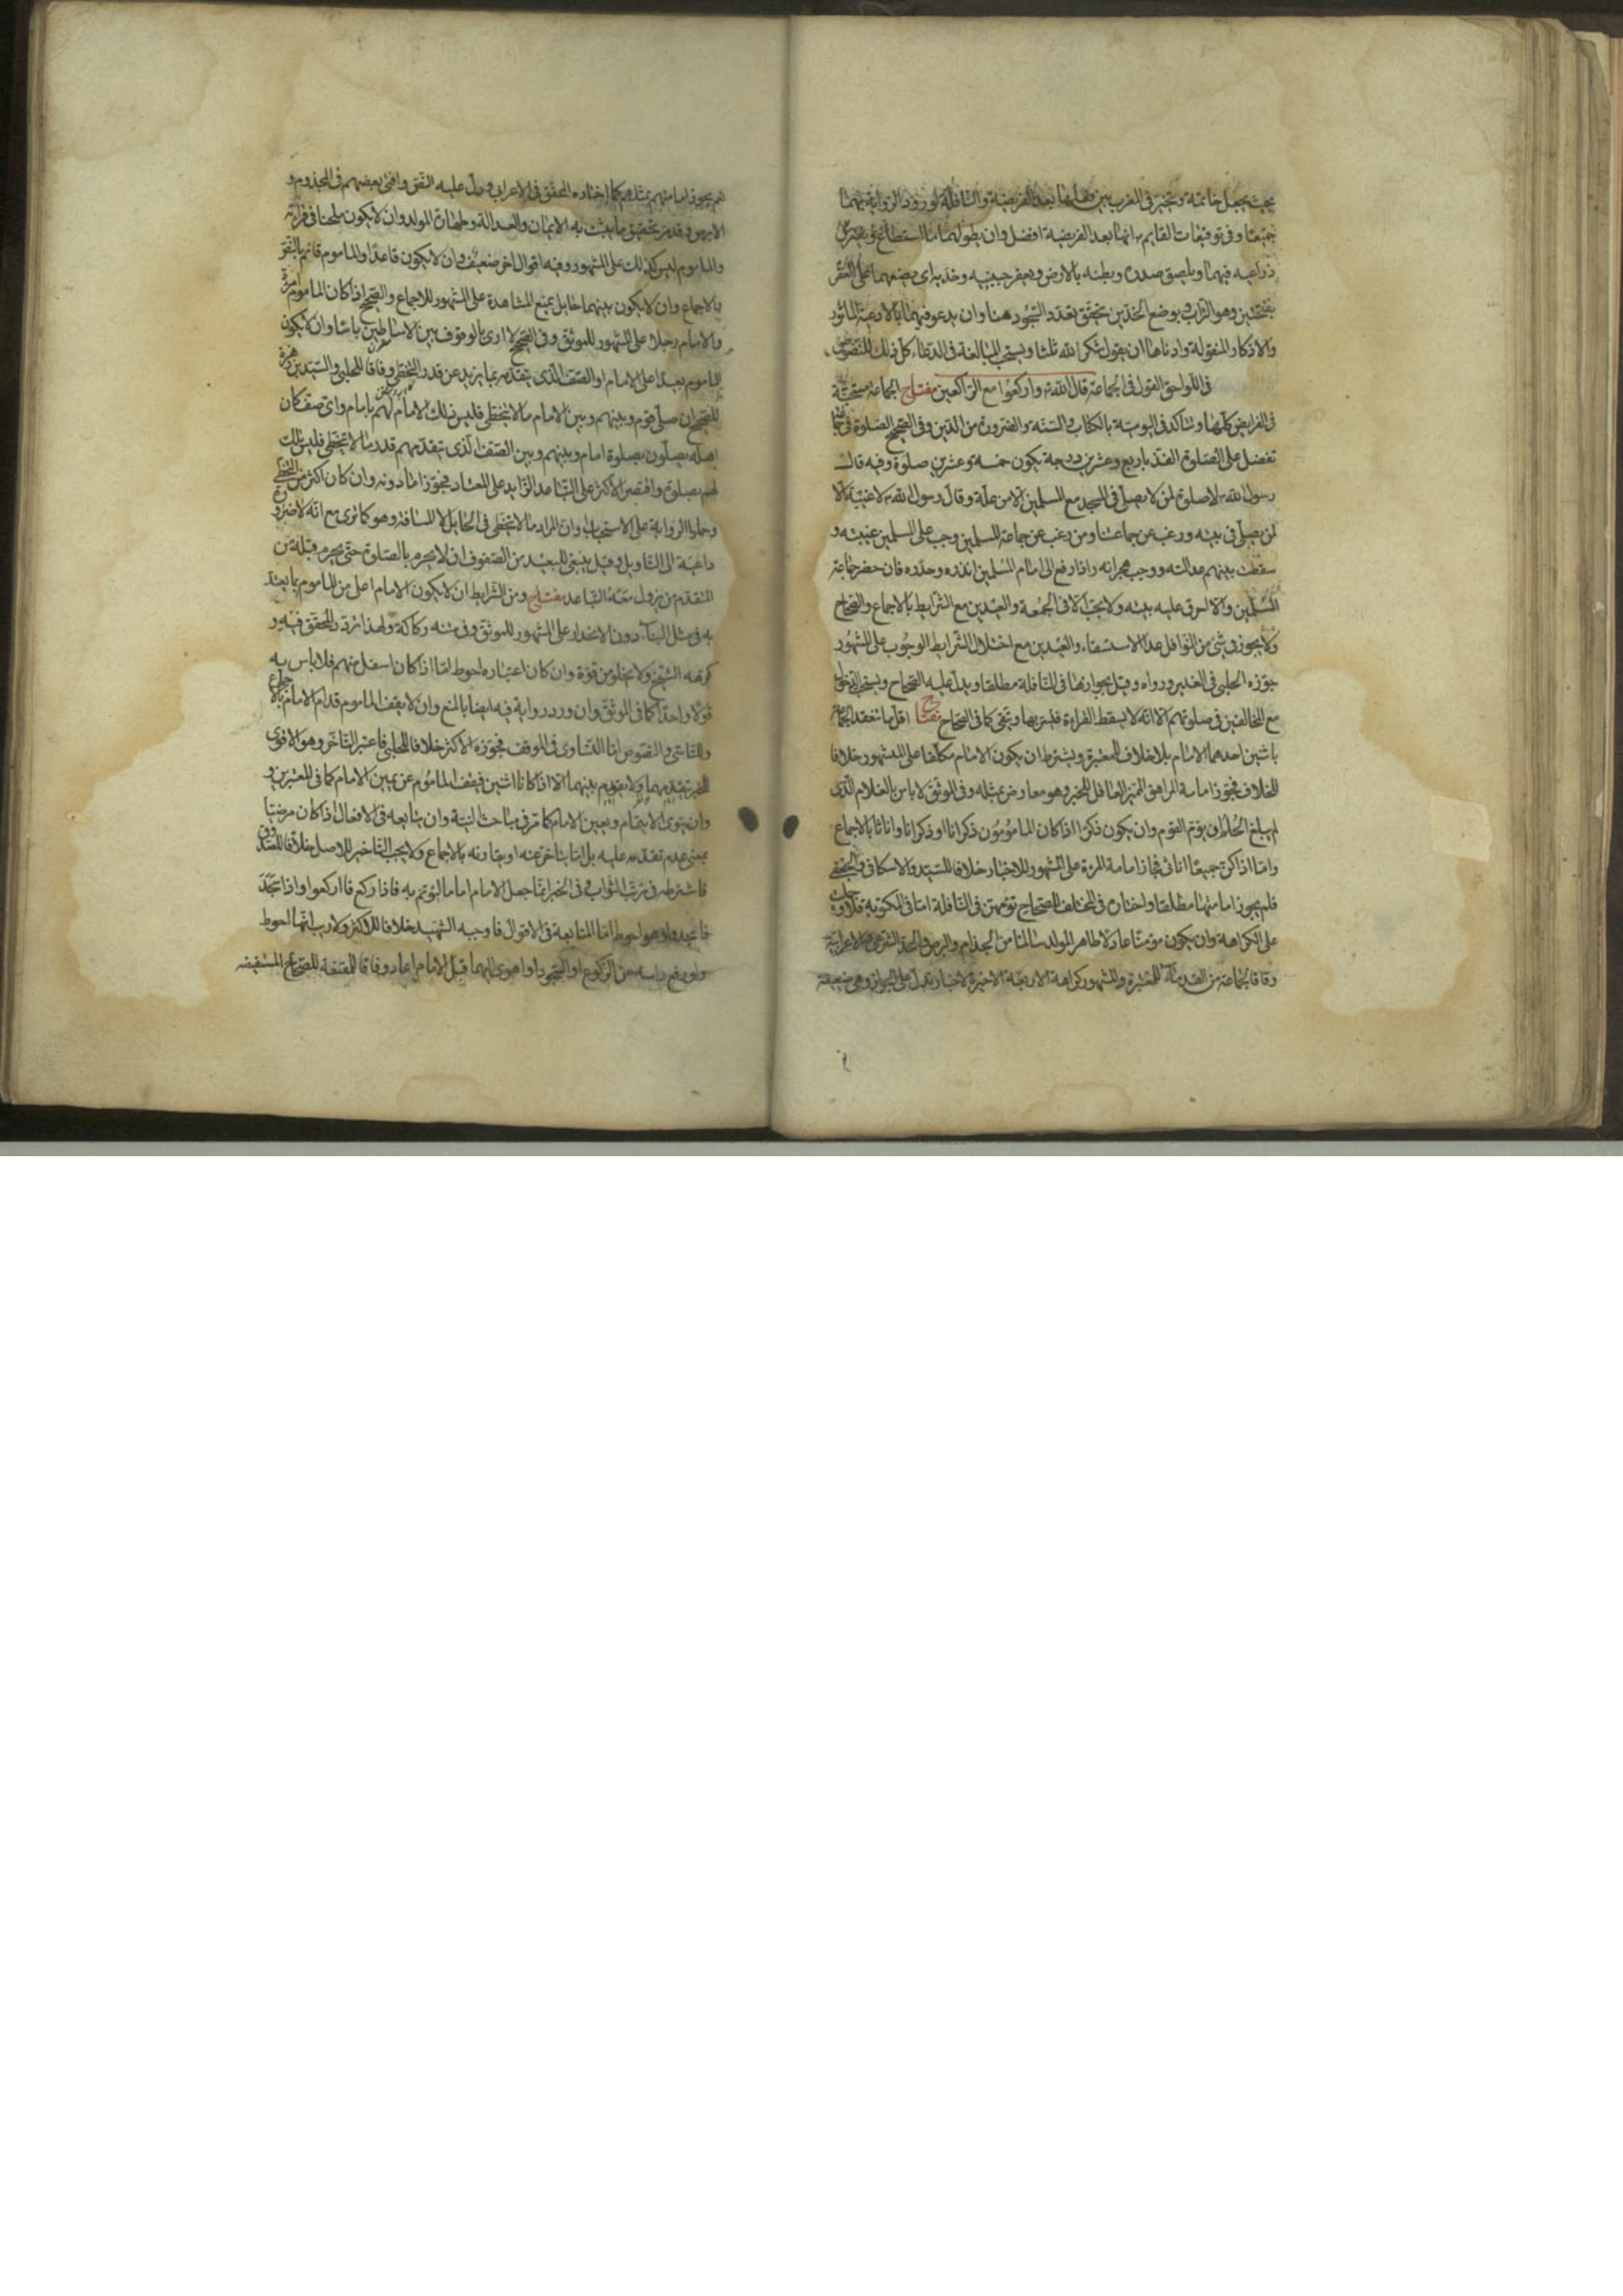 بحيث يجعل خاتمته وتخير في المغرب بين فعلها بعد الفريضة والنافلة لورود الرواية بهما
جميعا وفي توقيعات القايم ع انها بعد الفريضة افضل وان يطول فيهما ما استطاع ويفترش
ذراعيه فيهما ويلصق صدره وبطنه بالارض ويعفر جبينيه وخديه اي يضعهما على العفر
بفتحتين وهو التراب وبوضع الخدين يتحقق تعدد السجود هنا وان يدعو فيهما بالادعية الماثورة
والاذكار المنقولة وادناها ان يقول شكرا لله ثلثا ويستحب المبالغة في الدعاء كل ذلك للنصوص
في اللواحق القول في الجماعة قال الله تع واركعوا مع الراكعين مفتاح الجماعة مستحبة
في الفرايض كلها وتتاكد في اليومية بالكتاب والسنة والضرورة من الدين وفي الصحيح الصلوة في جماعة
تفضل على الصلوة الفذ باربع وعشرين درجة يكون خمسة وعشرين صلوة وفيه قال
رسول الله ص لا صلوة لمن لا يصلي في المسجد مع المسلمين الا من علة وقال رسول الله ص لا غيبة الا
لمن يصلي في بيته ورغب عن جماعتنا ومن رغب عن جماعة المسلمين وجب على المسلمين غيبته و
سقطت بينهم عدالته ووجب هجرانه واذا رفع الى امام المسلمين انذره وحذره فان حضر جماعة
المسلمين والا احرق عليه بيته ولا يجب الا في الجمعة والعيدين مع الشرايط بالاجماع والصحاح
ولا يجوز في شئ من النوافل عدا الاستسقاء والعيدين مع اختلال الشرايط الوجوب على المشهور
جوزه الحلبي في الغدير ورواه وقيل بجوازها في النافلة مطلقا ويدل عليه الصحاح ويستحب الدخول
مع المخالفين في صلوتهم الا انه لا يسقط القراءة فيسر بها ويتقي كما في الصحاح مفتاح اقل ما تنعقد الجماعة
باثنين احدهما الامام بلا خلاف للمعتبرة ويشترط ان يكون الامام مكلفا على المشهور خلافا
للخلاف فيجوز امامة المراهق المميز العاقل للخبر وهو معارض بمثله وفي الموثق لا باس بالغلام الذي
لم يبلغ الحلم ان يؤم القوم وان يكون ذكرا اذا كان المامومون ذكرانا او ذكرانا واناثا بالاجماع
واما اذا كن جميعا اناثى فجاز امامة المرءة على المشهور للاخبار خلافا للسيد والاسكافي والجعفي
فلم يجوزا مامتها مطلقا واختاره في المختلف للصحاح تؤمهن في النافلة اما في المكتوبة فلا وحملت
على الكراهة وان يكون مؤمنا عادلا طاهر المولد سالما من الجذام والبرص والحد الشرعي والاعرابية
وفاقا لجماعة من القدماء للمعتبرة والمشهور كراهة الاربعة الاخيرة لاخبار تدل على الجواز وهي ضعيفة
نعم يجوز امامتهم بمثلهم كما اختاره المحقق في الاعرابي ودل عليه النص وافتى بعضهم في المجذوم و
الابرص وقد مر تحقيق ما يثبت به الايمان والعدالة وطهارة المولد وان لا يكون ملحنا في قراءته
والماموم ليس كذلك على المشهور وفيه اقوال اخر ضعيف وان لا يكون قاعدا والماموم قائم بالنص
بالاجماع وان لا يكون بينهما حايل يمنع المشاهدة على المشهور للاجماع والصحيح اذا كان الماموم امرءة
والامام رجلا على المشهور للموثق وفي الصحيح لا ارى بالوقوف بين الاساطين باسا وان لا يكون
الماموم بعيدا على الامام او الصف الذي يتقدمه بما يزيد عن قدر التخطي وفاقا للحلبي والسيد بن زهرة
للصحيح ان صلى قوم وبينهم وبين الامام ما لا يتخطى فليس ذلك الامام لهم بامام واي صف كان
اهله يصلون بصلوة امام وبينهم وبين الصف الذي يتقدمهم قدر ما لا يتخطى فليس تلك
لهم بصلوة واقتصر الاكثر على التباعد الزايد على المعتاد فجوزا ما دونه وان كان اكثر من التخطي
وحملوا الرواية على الاستحباب وان المراد ما لا يتخطى في الحايل لا المسافة وهو كما ترى مع انه لا ضرورة
داعية الى التاويل وقيل ينبغي للبعيد من الصفوف ان لا يحرم بالصلوة حتى يحرم قبله من
المتقدم من يزول معه التباعد مفتاح ومن الشرايط ان لا يكون الامام اعلى من الماموم بما يعتد
به في مثل البناء دون الانحدار على المشهور للموثق وفي متنه ركاكة ولهذا تردد المحقق فيه و
كرهه الشيخ ولا يخلو من قوة وان كان اعتباره احوط اما اذا كان اسفل منهم فلا باس به
قولا واحدا كما في الموثق وان ورد رواية فيه ايضا بالمنع وان لا يقف الماموم قدام الامام بالاجماع
وللتاسي والنصوص اما التساوي في الموقف فجوزه الاكثر خلافا للحلي فاعتبر التاخر وهو الاقوى
للخبر يتقدمهما ولا يقوم بينهما الا اذا كانا اثنين فيقف الماموم عن يمين الامام كما في المعتبرين و
وان ينوي الايتمام ويعين الامام كما مر في مباحث النية وان يتابعه في الافعال اذا كان مرضيا
بمعنى عدم تقدمه عليه بل اما يتاخر عنه او يقارنه بالاجماع ولا يجب التاخير للاصل خلافا للصدوق
فاشترطه في ترتب الثواب وفي الخبر انما جعل الامام اماما ليؤتم به فاذا ركع فاركعوا واذا سجد
فاسجدوا وهو احوط اما المتابعة في الاقوال فاوجبه الشهيد خلافا للاكثر ولا ريب انها احوط
ولو رفع راسه من الركوع او السجود او اهوى اليهما قبل الامام اعاد وفاقا للمقنعة للصحاح المستفيضة